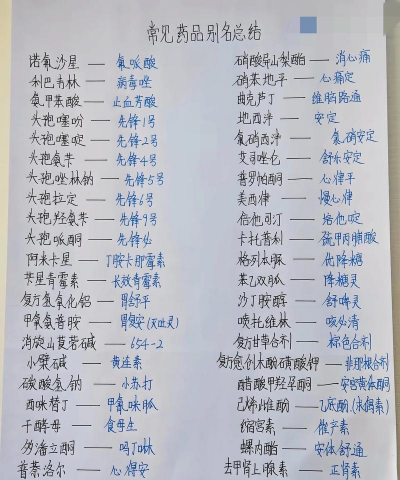 常见药品别名总结
诺氟沙星 — 氟哌酸
利巴韦林 — 病毒唑
氨甲苯酸 — 止血芳酸
头孢噻吩 — 先锋1号
头孢噻啶 — 先锋2号
头孢氨苄 — 先锋4号
头孢唑林钠 — 先锋5号
头孢拉定 — 先锋6号
头孢羟氨苄 — 先锋9号
头孢哌酮 — 先锋必
阿米卡星 — 丁胺卡那霉素
苄星青霉素 — 长效青霉素
复方氢氧化铝 — 胃舒平
甲氧氯普胺 — 胃复安(灭吐灵)
消旋山莨菪碱 — 654-2
小檗碱 — 黄连素
碳酸氢钠 — 小苏打
西咪替丁 — 甲氰咪胍
干酵母 — 食母生
多潘立酮 — 吗丁啉
普萘洛尔 — 心得安
硝酸异山梨酯 — 消心痛
硝苯地平 — 心痛定
曲克芦丁 — 维脑路通
地西泮 — 安定
氯硝西泮 — 氯硝安定
艾司唑仑 — 舒乐安定
普罗帕酮 — 心律平
美西律 — 慢心律
倍他司汀 — 培他啶
卡托普利 — 巯甲丙脯酸
格列本脲 — 优降糖
苯乙双胍 — 降糖灵
沙丁胺醇 — 舒喘灵
喷托维林 — 咳必清
复方甘草合剂 — 棕色合剂
醋酸甲羟孕酮 — 安宫黄体酮
己烯雌酚 — 乙底酚
缩宫素 — 催产素
螺内酯 — 安体舒通
去甲肾上腺素 — 正肾素